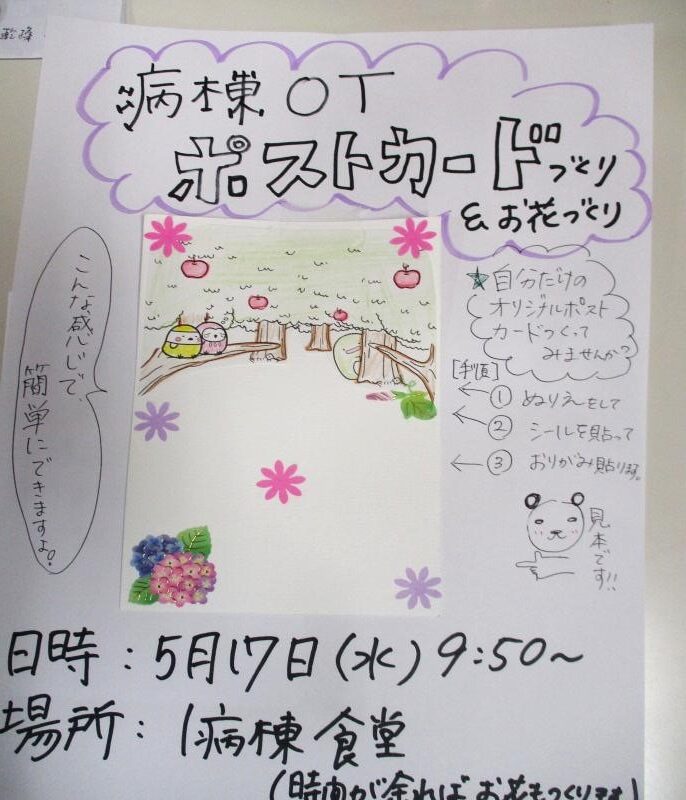 病棟OT
ポストカードづくり
& お花づくり
こんな感じで、
簡単にできますよ!
★自分だけの
オリジナルポスト
カードつくって
みませんか?
[手順]
← ① ぬりえをして
← ② シールを貼って
← ③ おりがみ貼ります。
見本です!!
日時:5月17日(水)9:50~
場所:1病棟食堂
(時間が余ればお花もつくります)